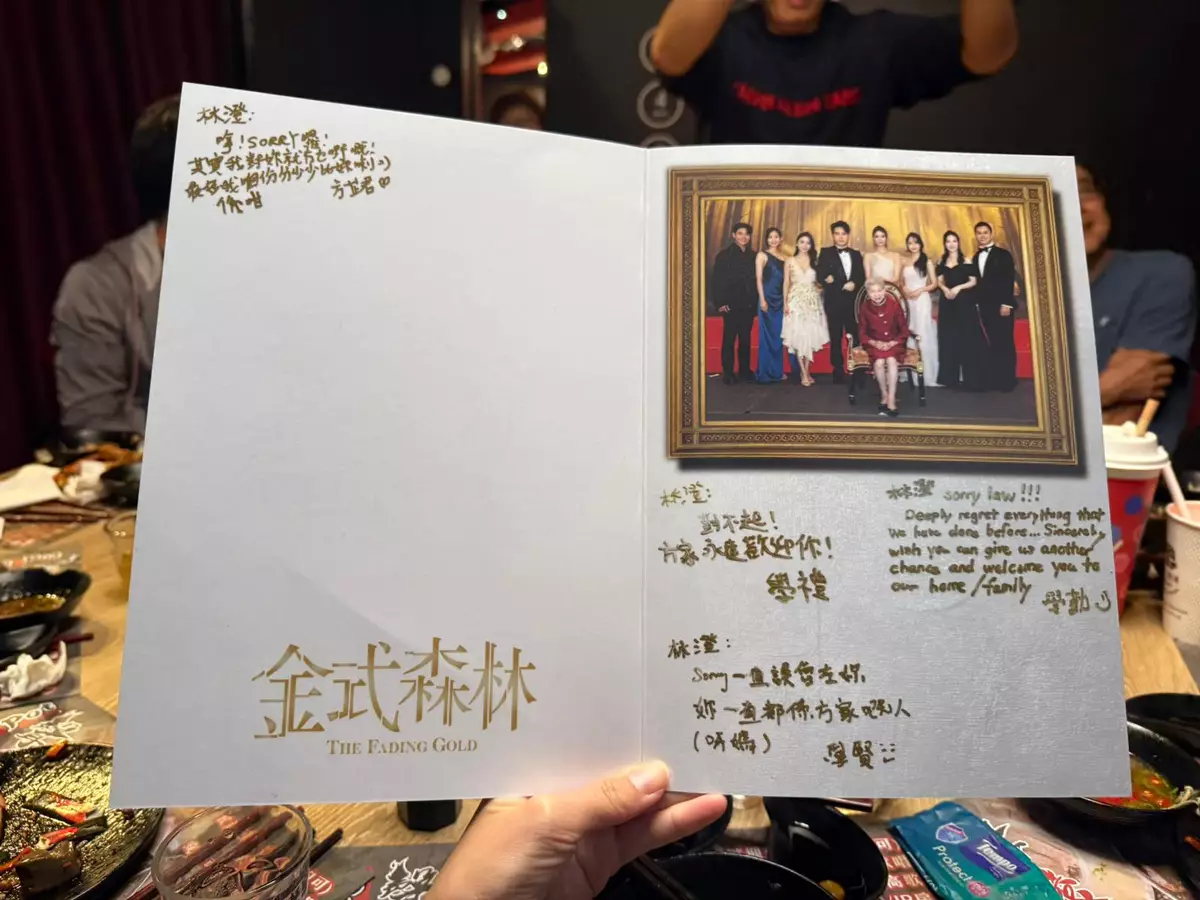 林澄:
吓!SORRY囉!
其實我對妳
方芷君♡
金式森林
THE FADING GOLD
林澄:
對不起!
方家永遠歡迎你!
學禮
林澄 sorry law!!!
Deeply regret everything that
we have done before... Sincerely
wish you can give us another
chance and welcome you to
our home/family
學勤
林澄:
Sorry一直誤會左妳,
妳一直都係方家嘅人
(呀媽)
學賢
Tempo
Protect